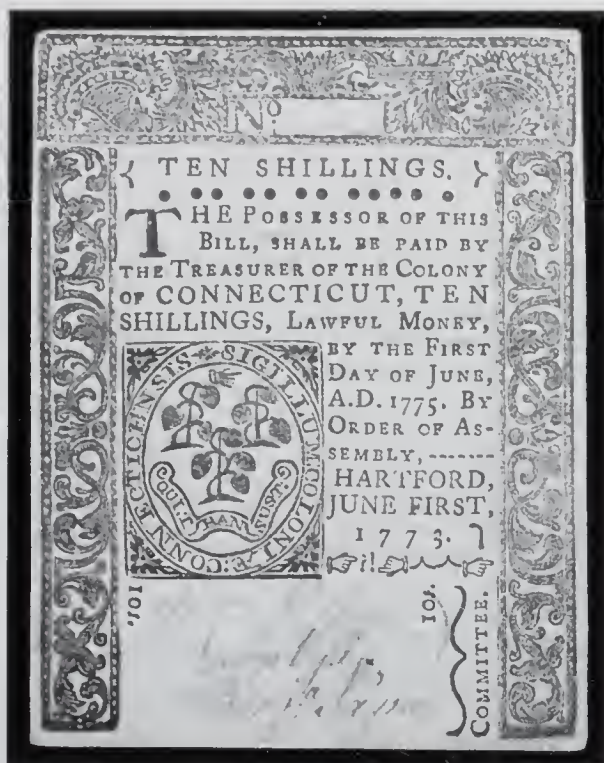 No
{ TEN SHILLINGS. }
THE POSSESSOR OF THIS
BILL, SHALL BE PAID BY
THE TREASURER OF THE COLONY
OF CONNECTICUT, TEN
SHILLINGS, LAWFUL MONEY,
BY THE FIRST
DAY OF JUNE,
A.D. 1775. BY
ORDER OF AS-
SEMBLY, -------
HARTFORD,
JUNE FIRST,
1773.
SIGILLUM:COLONIÆ:CONNECTICENSIS
QUI:T
SUST
10s.
10s.
COMMITTEE.